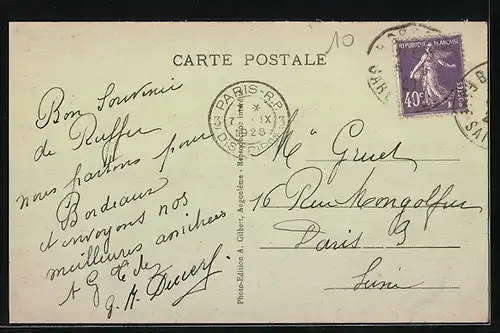 10
CARTE POSTALE
REPUBLIQUE FRANÇAISE
40c
PARIS-R.P.
3 3
7 IX
1928
DISTRIBON
Bon Souvenir
de Ruffec
nous partons pour
Bordeaux
et envoyons nos
meilleures amitiées
Photo-Edition A. Gilbert, Angoulême - Reproduction interdite
Gruet
16 Rue Mongolfier
Paris 3
Seine